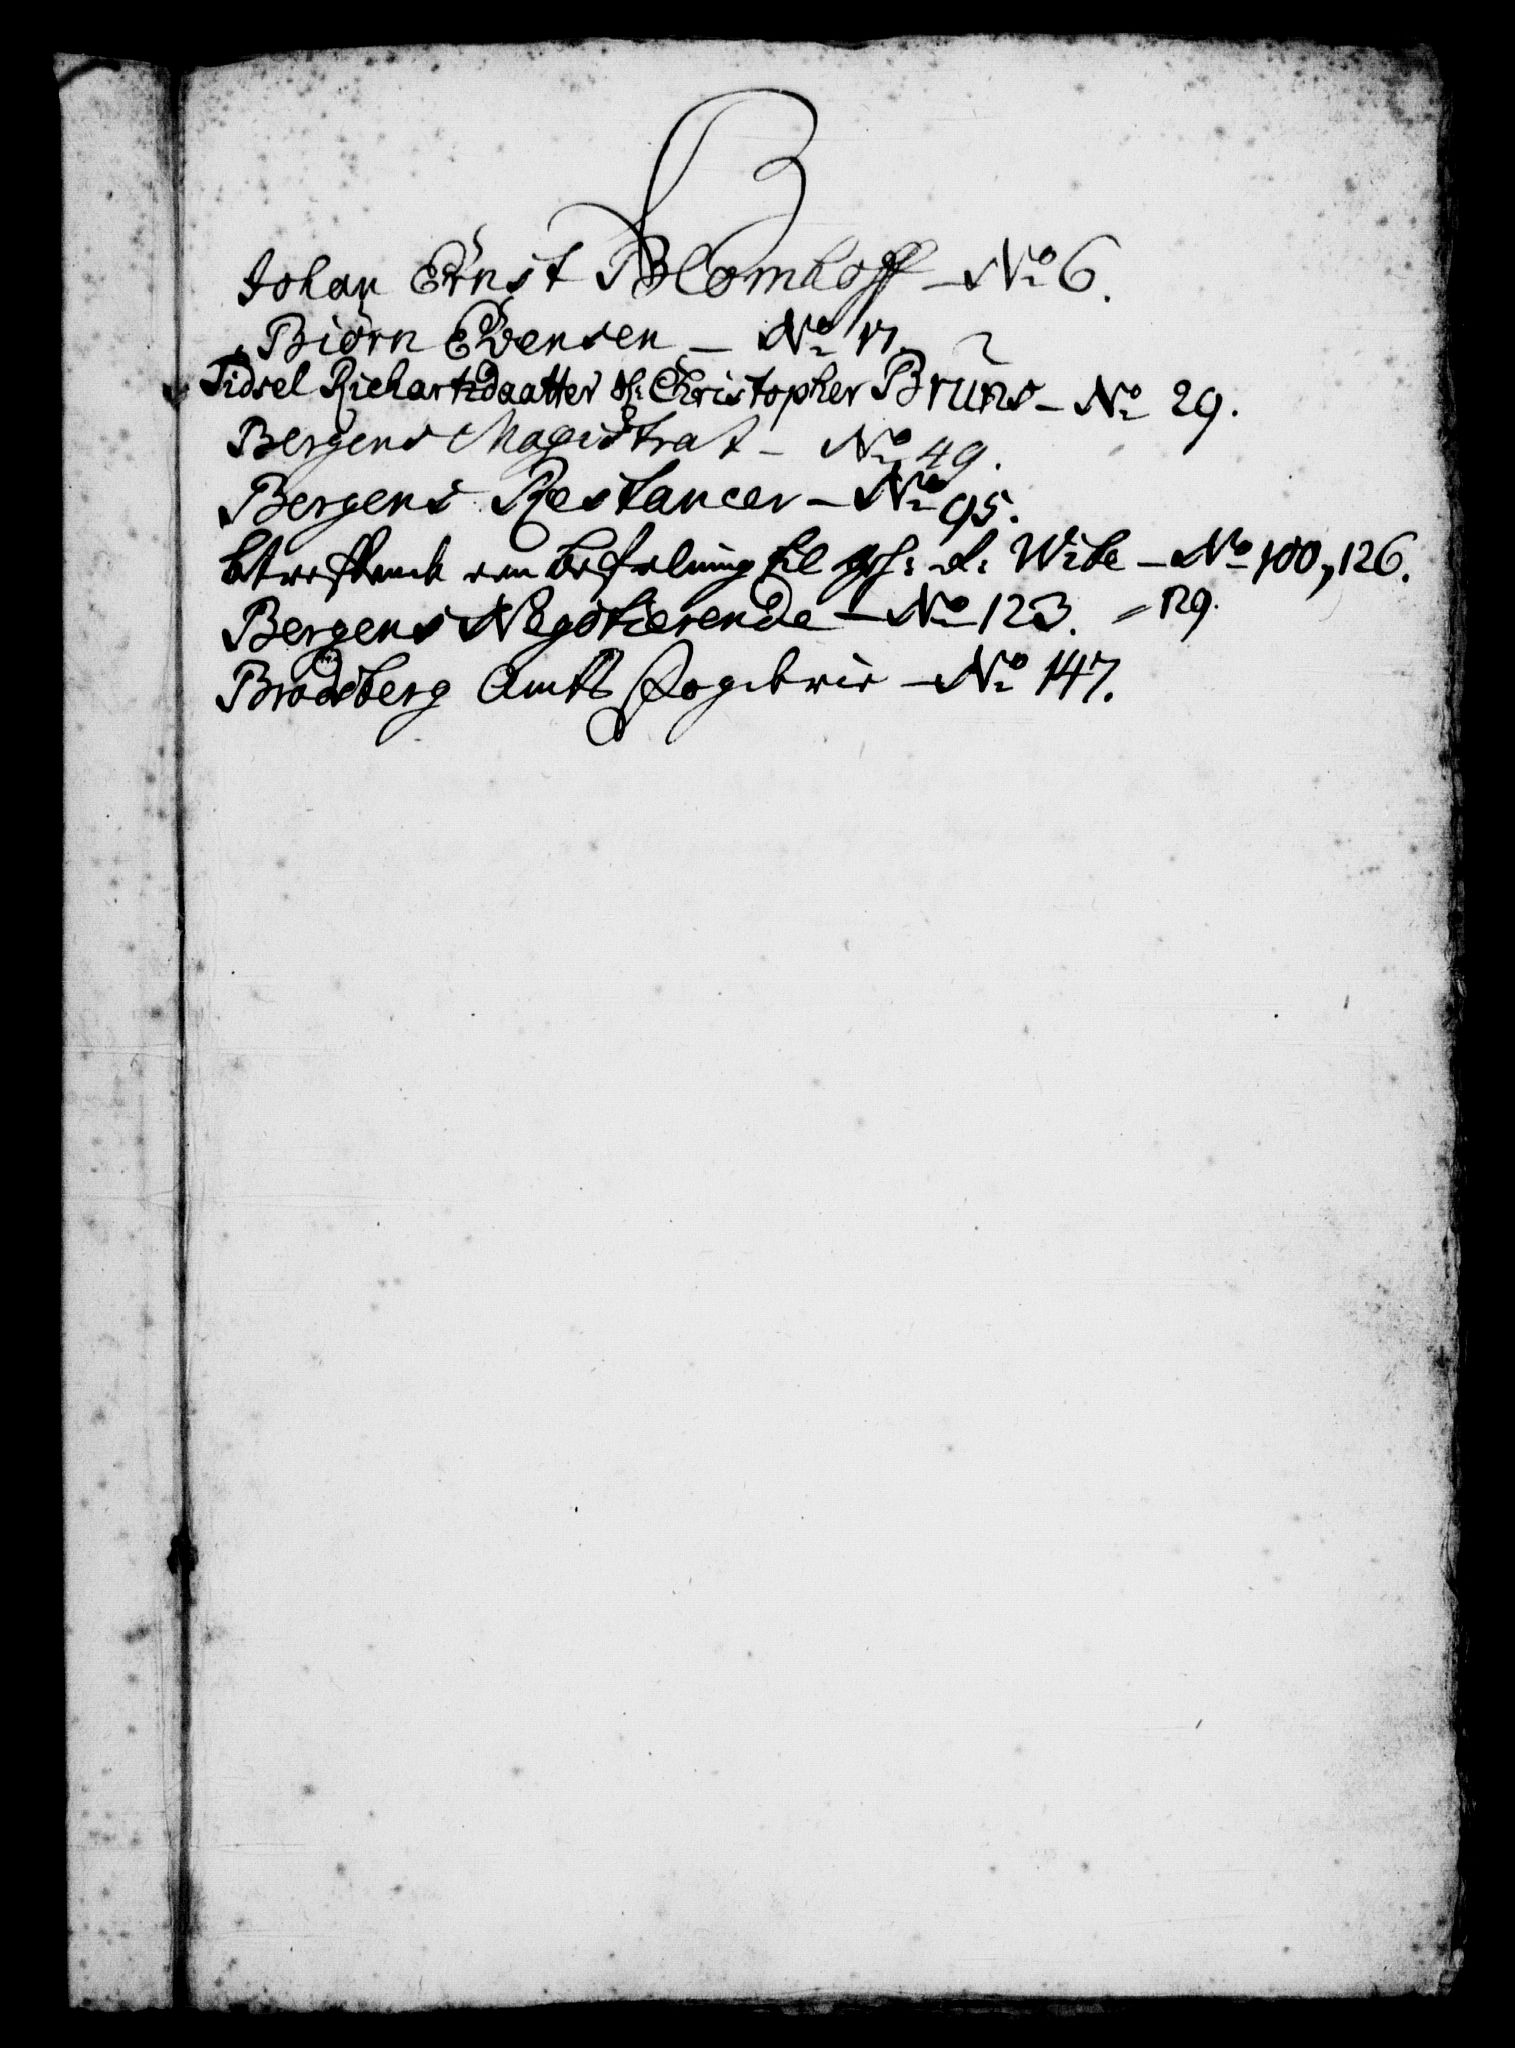 B
Johan Ernst Blomhoff - No 6.
Biörn Evensen - No 17.
Tidsel Richartzdaatter Christopher Bruns - No 29.
Bergens Magistrat - No 49.
Bergens Restancer - No 95.
befalning til Wibe - No 100, 126.
Bergens Negotierende - No 123. = 129.
Bradsberg Amts Fogderie - No 147.